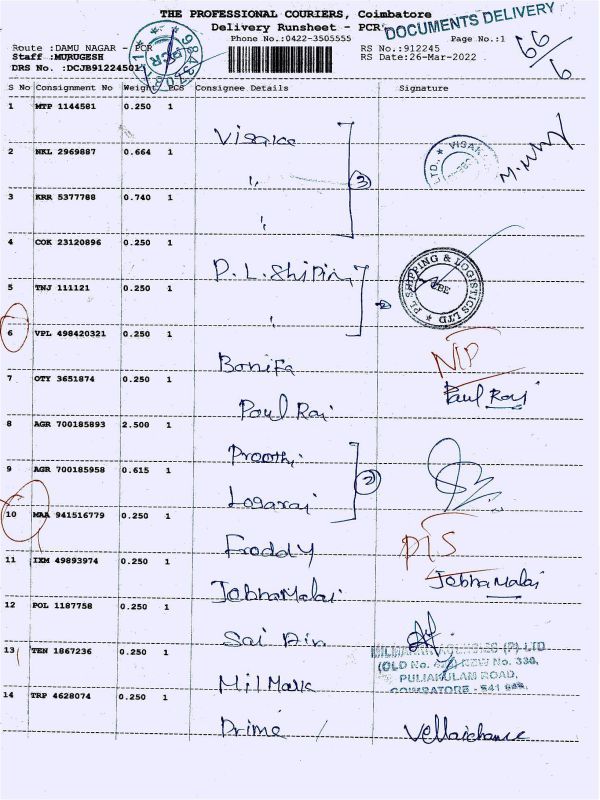 THE PROFESSIONAL COURIERS, Coimbatore
Delivery Runsheet - PCR
DOCUMENTS DELIVERY
Phone No.:0422-3505555 Page No.:1
Route :DAMU NAGAR - PCR RS No.:912245
Staff :MURUGESH RS Date:26-Mar-2022
DRS No. :DCJB912245011
66/6
S No Consignment No Weight PCS Consignee Details Signature
1 MTP 1144581 0.250 1
2 NKL 2969887 0.664 1
3 KRR 5377788 0.740 1
3
4 COK 23120896 0.250 1
P.L. Shipin
5 TNJ 111121 0.250 1
PL SHIPPING & LOGISTICS LTD
6 VPL 498420321 0.250 1
Bonifa
7 OTY 3651874 0.250 1
Paul Raj Paul Raj
8 AGR 700185893 2.500 1
9 AGR 700185958 0.615 1
Logaraj
2
10 MAA 941516779 0.250 1
Froddy
11 IXM 49893974 0.250 1
JobhaMalai JobhaMalai
12 POL 1187758 0.250 1
13 TEN 1867236 0.250 1
(P) LTD
NEW No. 330,
PULIAKULAM ROAD,
COIMBATORE
MilMark
14 TRP 4628074 0.250 1
Prime